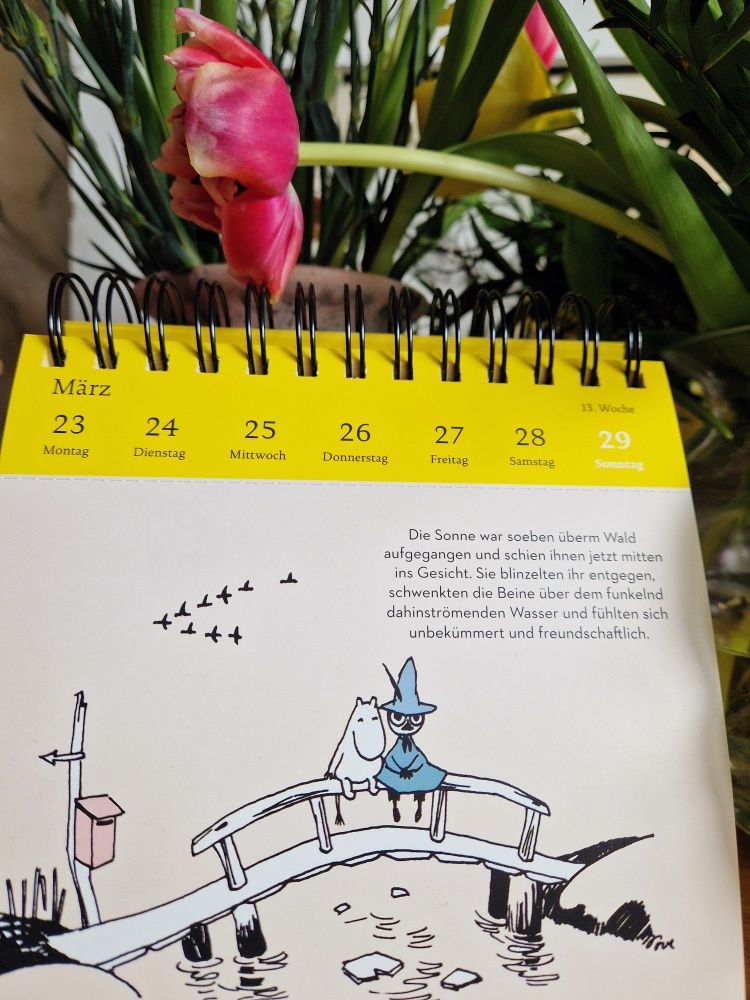 März
13. Woche
23 24 25 26 27 28 29
Montag Dienstag Mittwoch Donnerstag Freitag Samstag Sonntag
Die Sonne war soeben überm Wald
aufgegangen und schien ihnen jetzt mitten
ins Gesicht. Sie blinzelten ihr entgegen,
schwenkten die Beine über dem funkelnd
dahinströmenden Wasser und fühlten sich
unbekümmert und freundschaftlich.